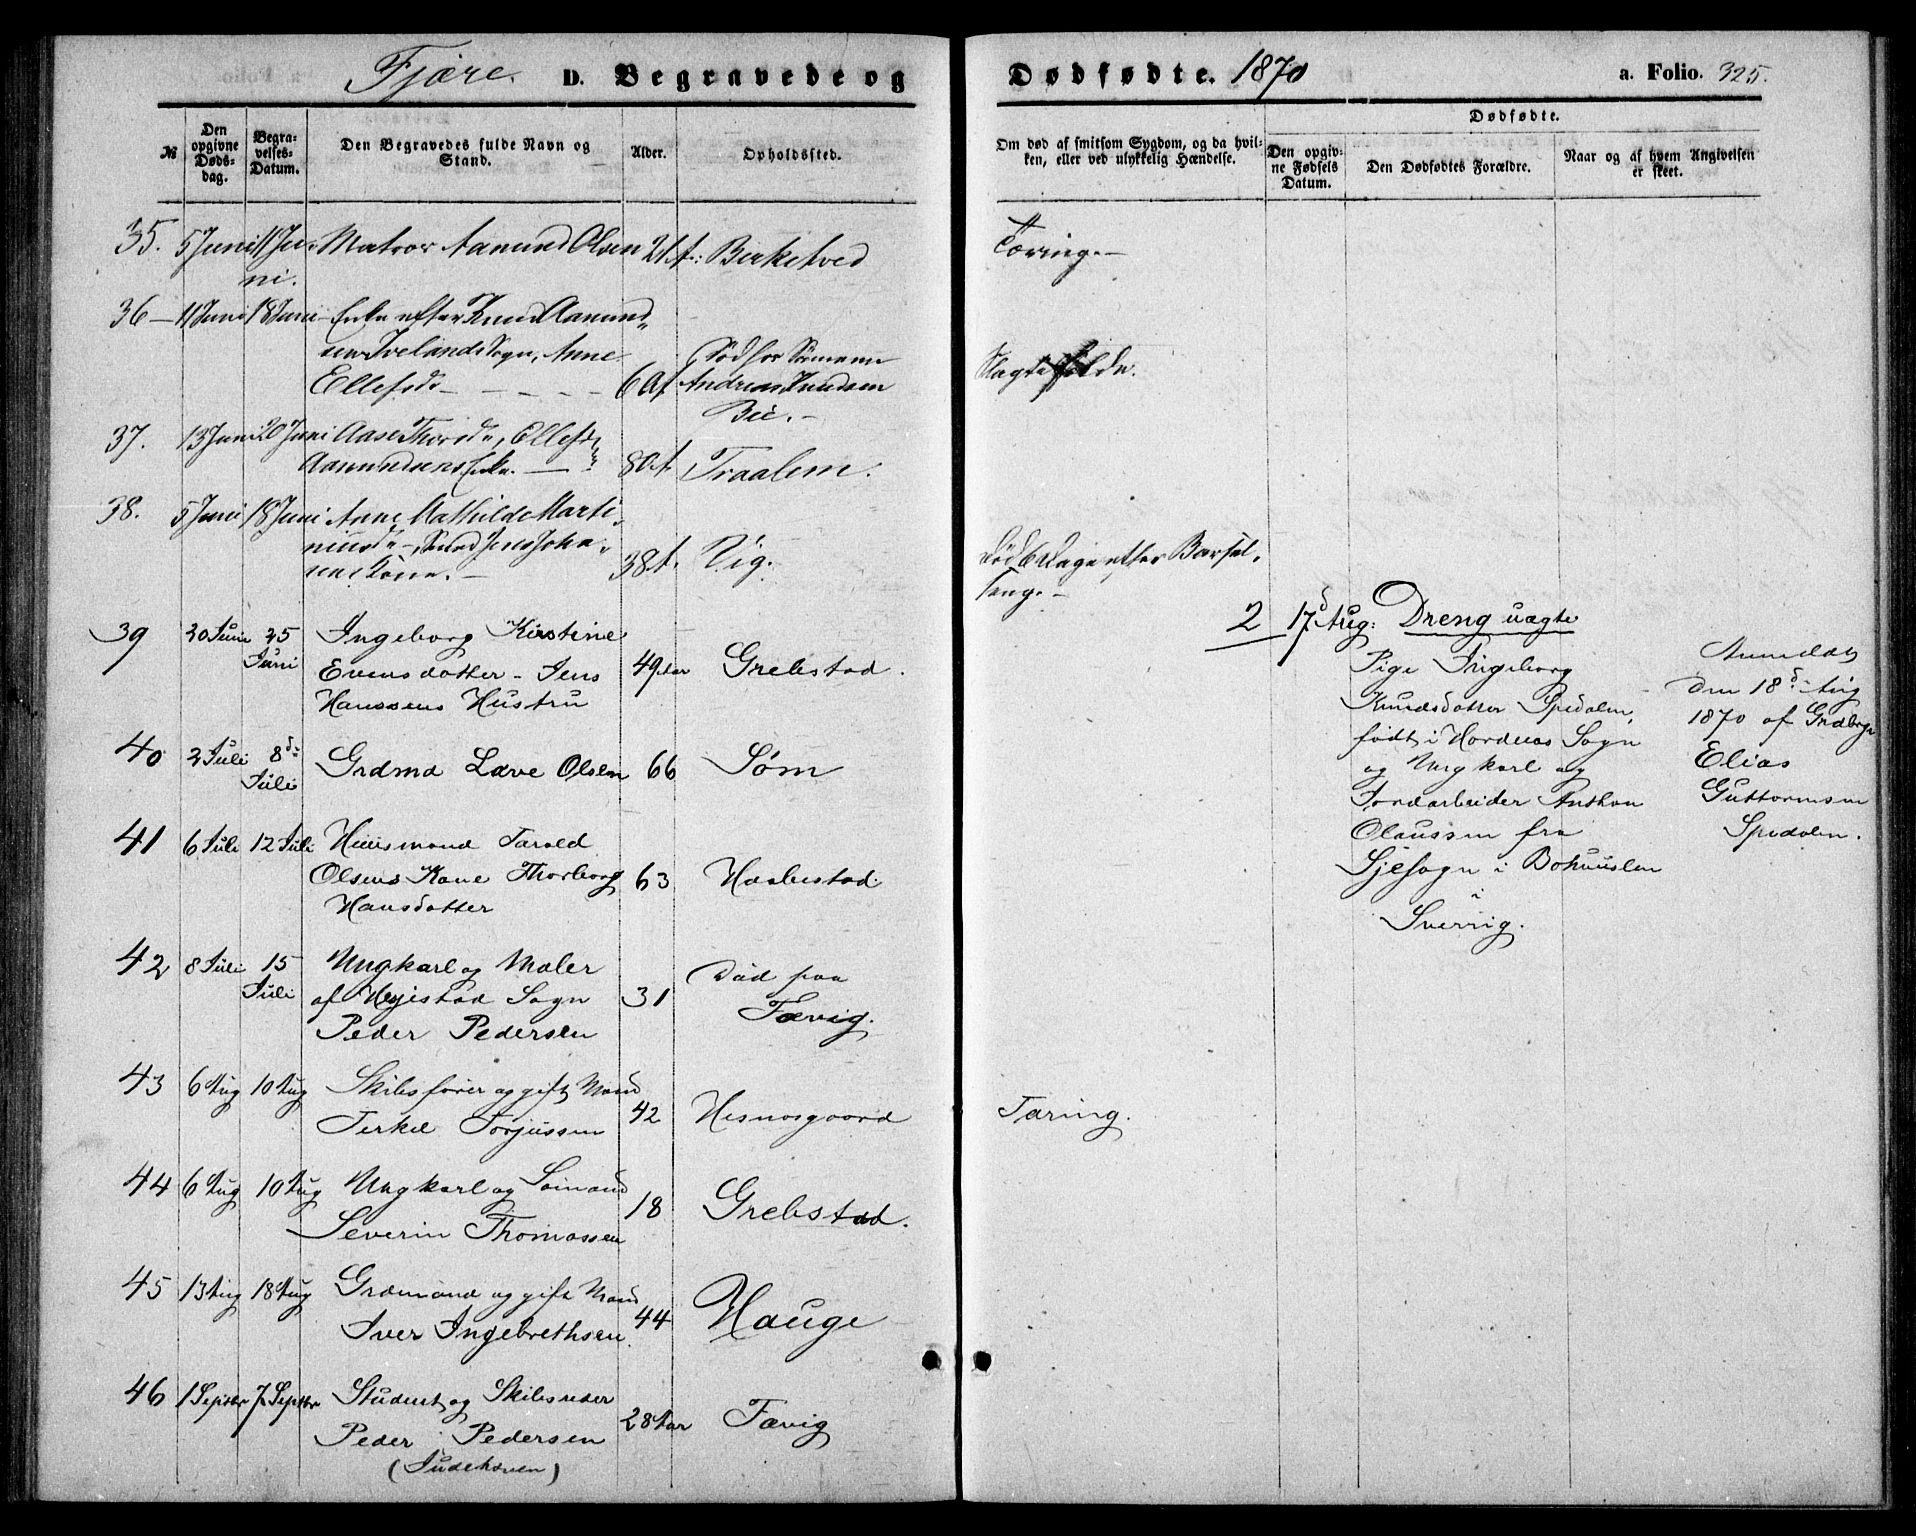 Fjære. D. Begravede og
№
Den opgivne Døds-dag.
Begra-velses-Datum.
Den Begravedes fulde Navn og Stand.
Alder.
Opholdssted.
35. 5 Juni 11 Ju- Matros Aamund Olsen 21 A: Birketved
ni.
36 — 11 Juni 18 Juni Enke efter Knud Aamund-
sen Ivelands Sogn, Anne Død hos Sømann
Ellefsd. - - - - 60 A Andreas Knudsen
Bie. -
37. 13 Juni 20 Juni Aase Thorsd., Ellef
Aamundsens Enke. — 80 A. Traalem.
38. 5 Juni 18 Juni Anne Mathilde Marti-
niusd. -, Jens Joha-
sens Kone. - 38 A. Vig.
39 20 Juni 25 Ingeborg Kirstine
Juni Evensdatter - Jens 49 Aar Grebstad.
Hanssens Hustru
40 2 Juli 8d: Grdmd Lave Olsen 66 Søm
Juli
41 6 Juli 12 Juli Huusmand Tarald
Olsens Kone Thorborg 63 Haabestad
Hansdatter
42 8 Juli 15 Ungkarl og Maler Død paa
Juli af Høiestad Sogn 31 Fævig.
Peder Pedersen
43 6 Aug 10 Aug Skibsfører og gift Mand
Terkel Torjussen 42 Hesnesgaard
44 6 Aug 10 Aug Ungkarl og Sømand
Severin Thomassen 18 Grebstad.
45 13 Aug 18 Aug Grdmand og gift Mand
Iver Ingebrethsen 44 Hauge
46 1 Septbr 7 Septbr Student og Skibsreder
Peder Pedersen 28 Aar Fævig
Dødfødte. 1870 a. Folio. 325.
Om død af smitsom Sygdom, og da hvil-
ken, eller ved ulykkelig Hændelse.
Dødfødte.
Den opgiv-
ne Fødsels
Datum.
Den Dødfødtes Forældre.
Naar og af hvem Angivelsen
er skeet.
Tæring. -
Død 6 Dage efter Barsel-
seng. -
Tæring.
2 17d Aug: Dreng uægte
Pige Ingeborg
Knudsdatter Spedalen,
født i Hordnæs Sogn
og Ungkarl og
Jordarbeider Anthon
Olaussen fra
Sjesogn i Bohuuslen
i
Sverrig.
Anmeldt
den 18d. Aug
1870 af Grdbrgr
Elias
Guttormsen
Spedalen.